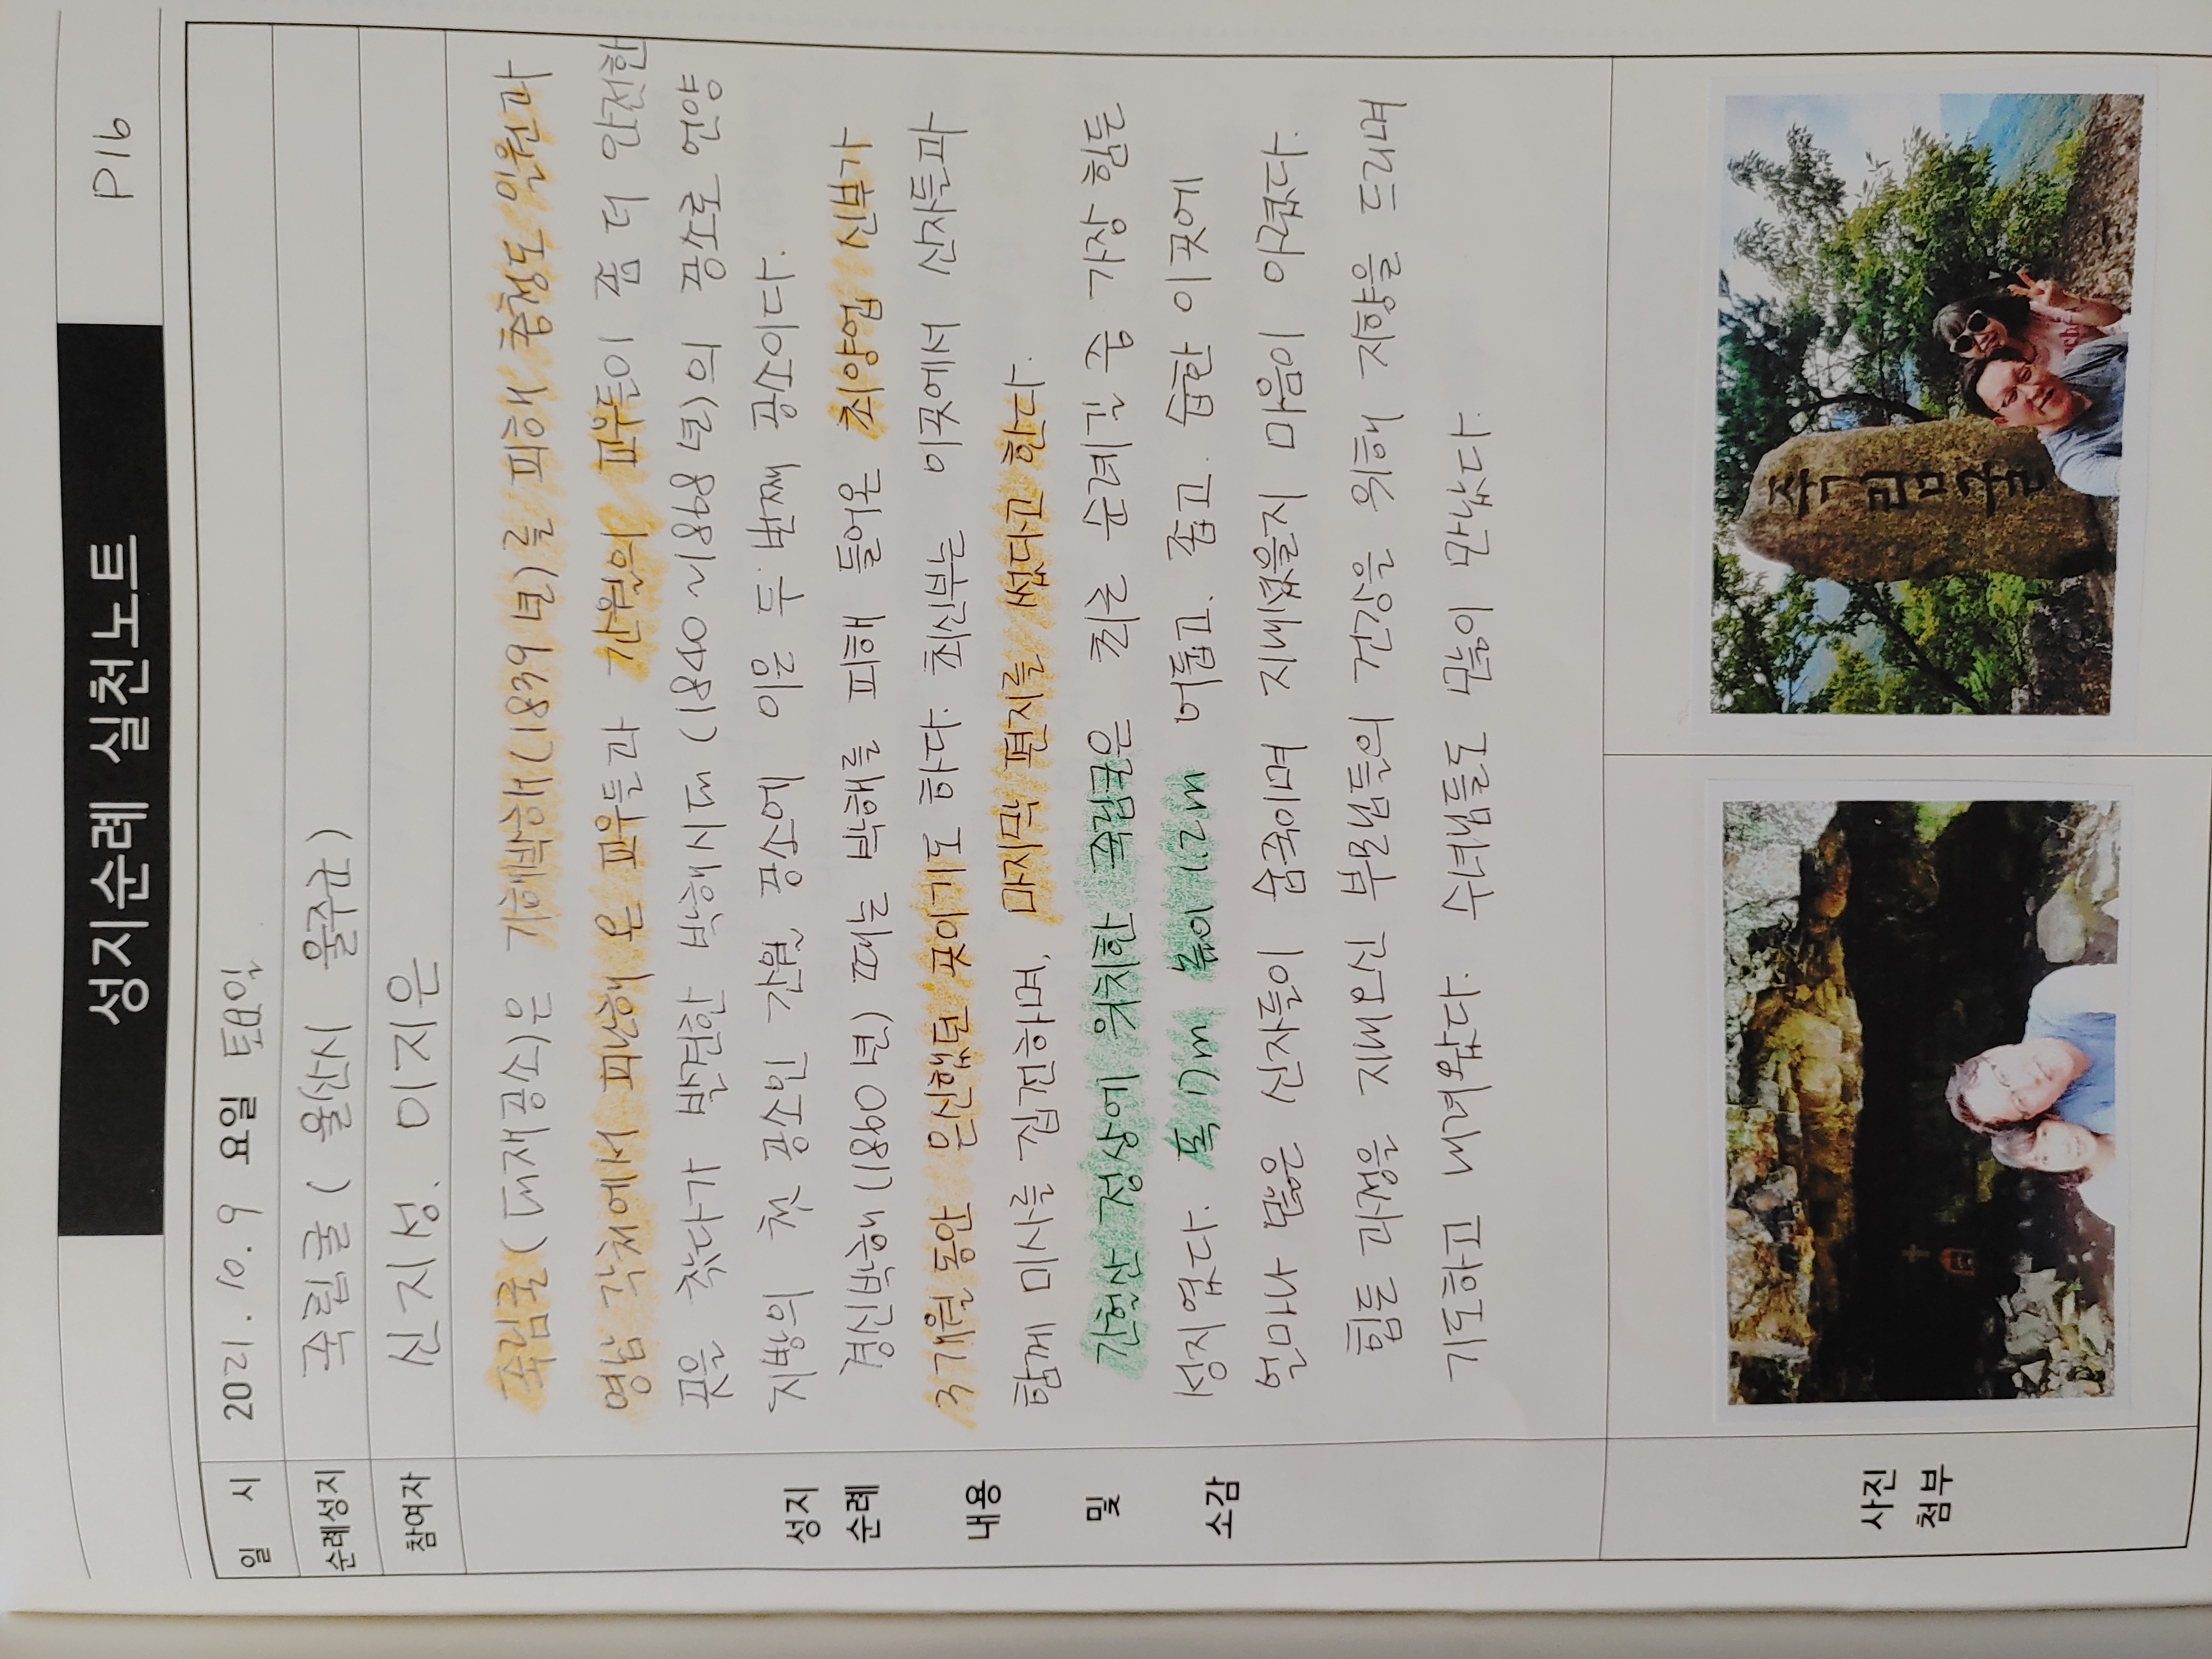 성지순례 실천노트
P16
일 시
2021. 10. 9 요일 토요일
순례성지
죽림굴 ( 울산시 울주군 )
참여자
신지성. 이지은
성지
순례
내용
및
소감
죽림굴 (대재공소)은 기해박해(1839년)를 피해 충청도 일원과
영남 각처에서 피난해 온 교우들과 간월의 교우들이 좀 더 안전한
곳을 찾다가 발견한 박해시대 (1840~1868년)의 공소로 언양
지방의 첫 공소인 간월 공소에 이은 두 번째 공소이다.
경신박해(1860년) 때는 박해를 피해 들어온 최양업 신부가
3개월 동안 은신했던 곳이기도 하다. 최신부는 이곳에서 신자들과
함께 미사를 집전하며, 마지막 편지를 썼다고 한다.
간헐산 정상에 위치한 죽림굴은 최근 순례길 중 가장 힘든
성지였다. 폭 17m 높이 1.2m 어둡고. 좁고. 습한 이곳에
얼마나 많은 신자들이 숨죽이며 지내셨을지 마음이 아렸다.
힘든 과정을 지내오신 부모님들의 건강을 위해 지향을 드리며
기도하고 내려왔다. 수녀님들도 많이 만났다.
사진
첨부
죽림굴